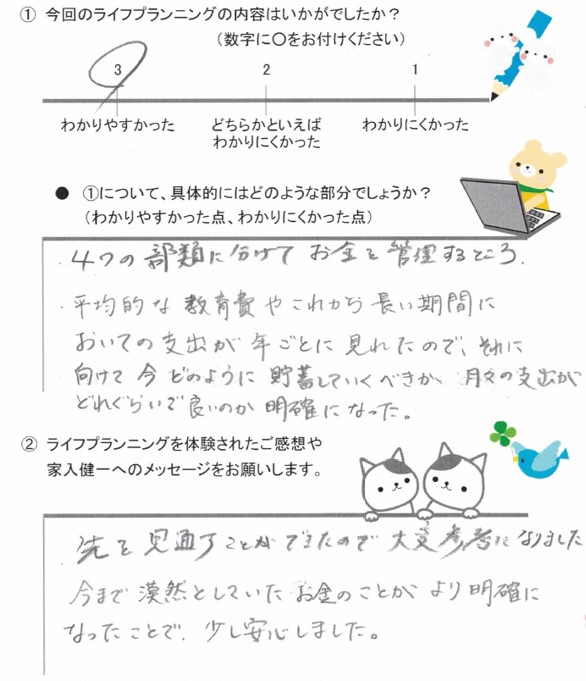 ① 今回のライフプランニングの内容はいかがでしたか？
（数字に〇をお付けください）
3 2 1
わかりやすかった どちらかといえば わかりにくかった
わかりにくかった
● ①について、具体的にはどのような部分でしょうか？
（わかりやすかった点、わかりにくかった点）
・4つの部類に分けてお金を管理するところ。
・平均的な教育費やこれから長い期間に
おいての支出が年ごとに見れたので、それに
向けて今どのように貯蓄していくべきか、月々の支出が
どれぐらいで良いのか明確になった。
② ライフプランニングを体験されたご感想や
家入健一へのメッセージをお願いします。
先を見通すことができたので大変参考になりました
今まで漠然としていたお金のことがより明確に
なったことで、少し安心しました。